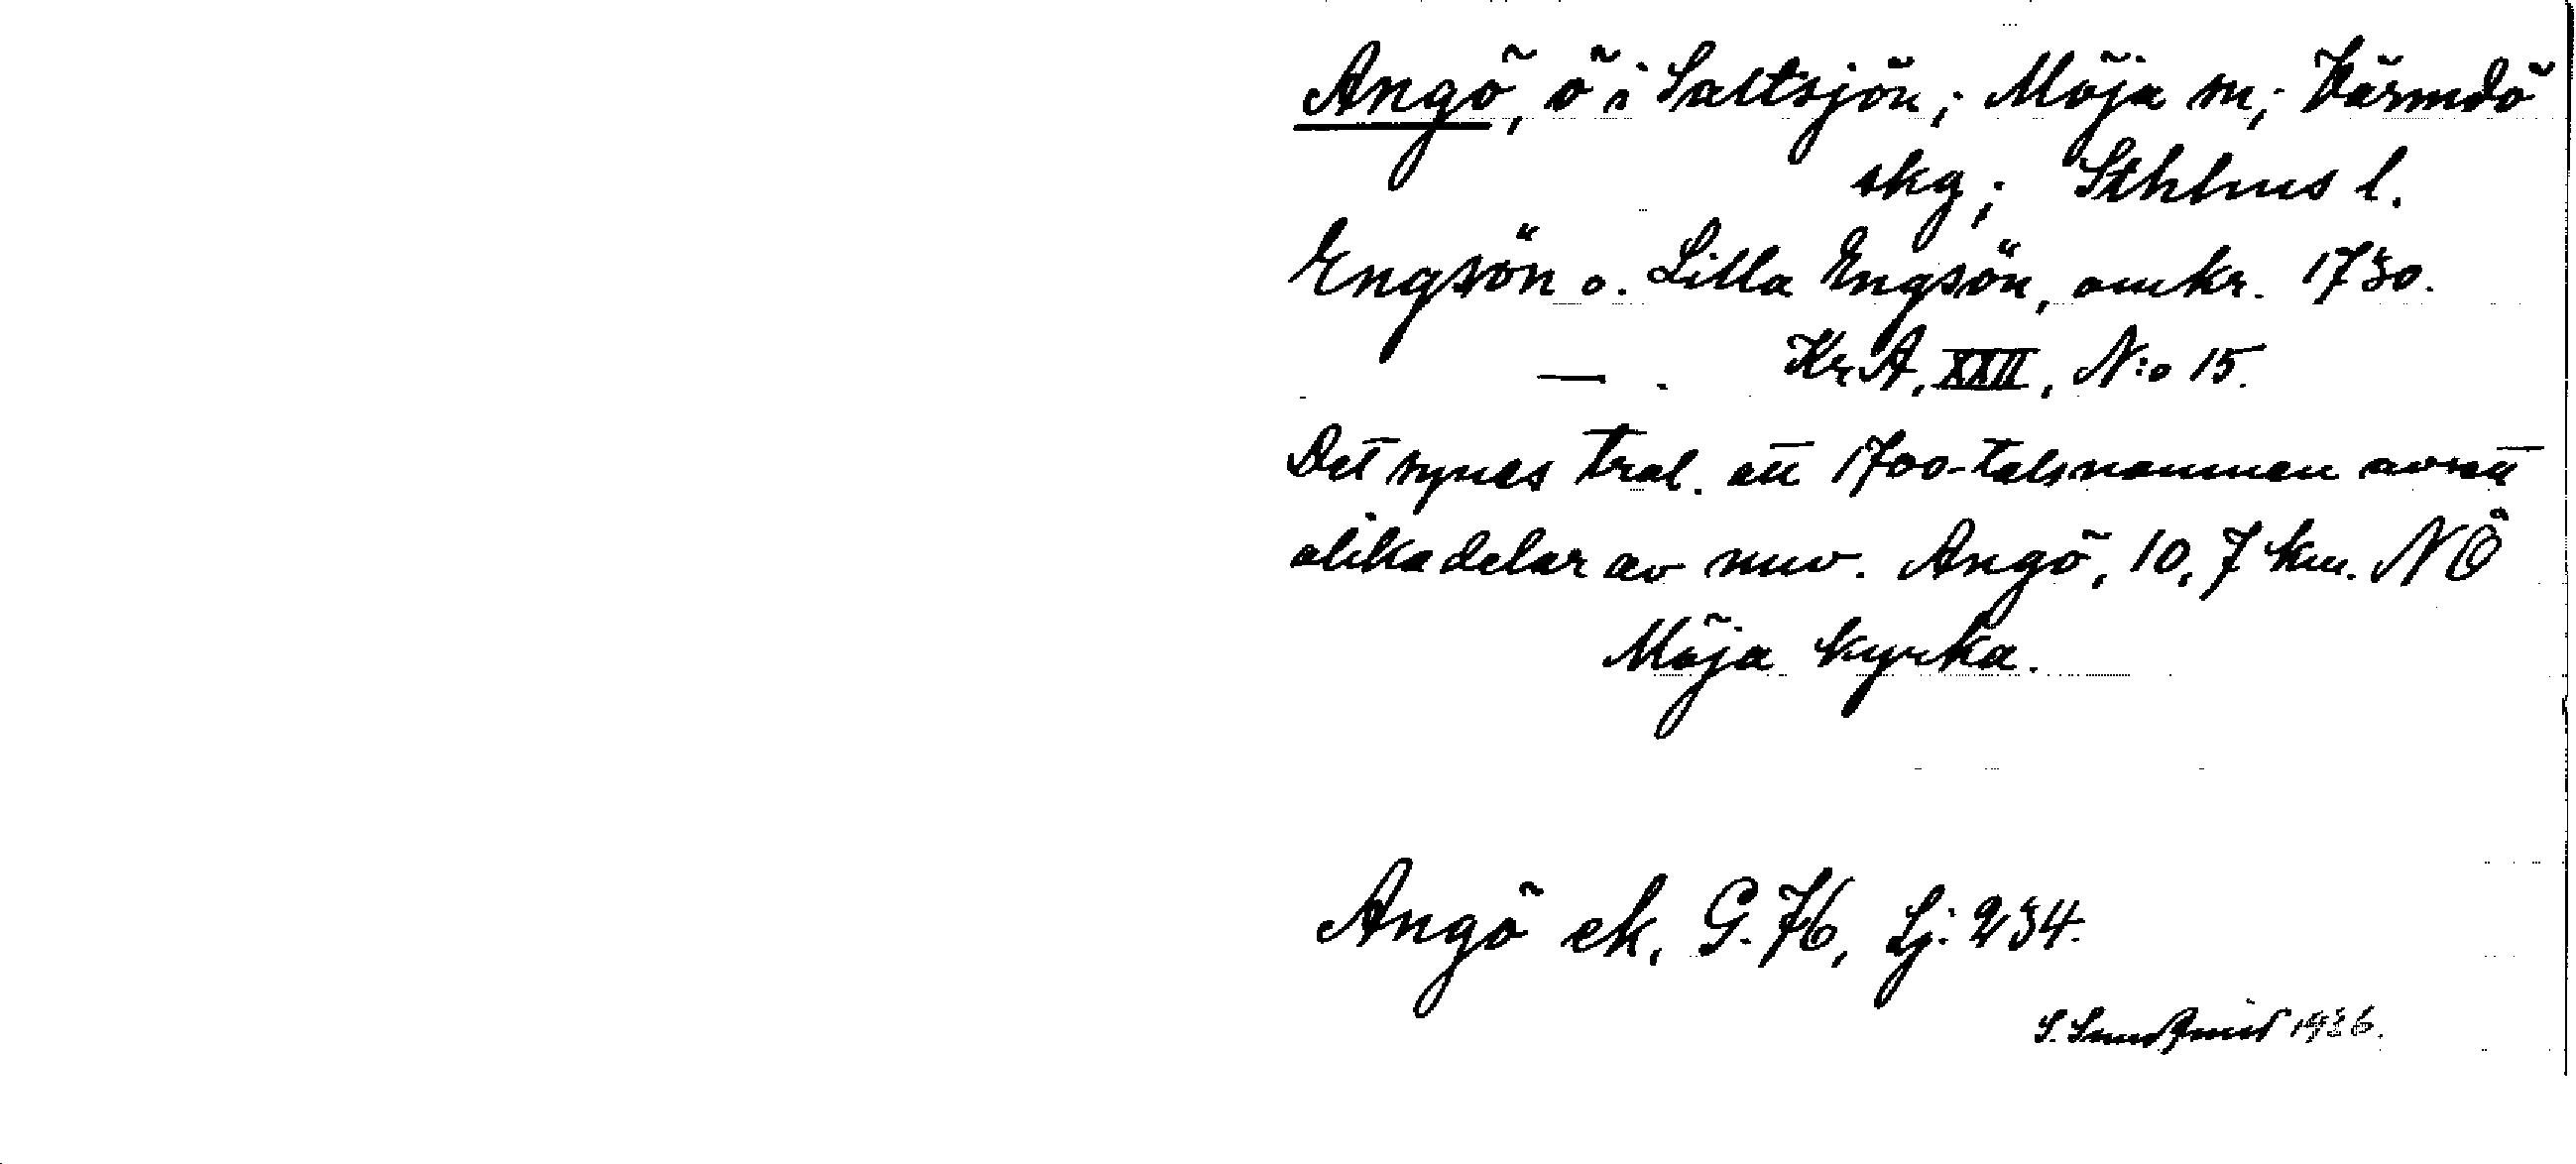 Angö, ö i Saltsjön; Möja sn; Värmdö
skg; Sthlms l.
Engsön o. Lilla Engsön, omkr. 1730.
— . Kr.A, XXII, N:o 15.
Det synes trol. att 1700-talsnamnen avsett
olika delar av nuv. Angö, 10,7 km. NÖ
Möja kyrka.
Angö ek. G. 76, Lj: 234.
S. Sundqvist 1936.